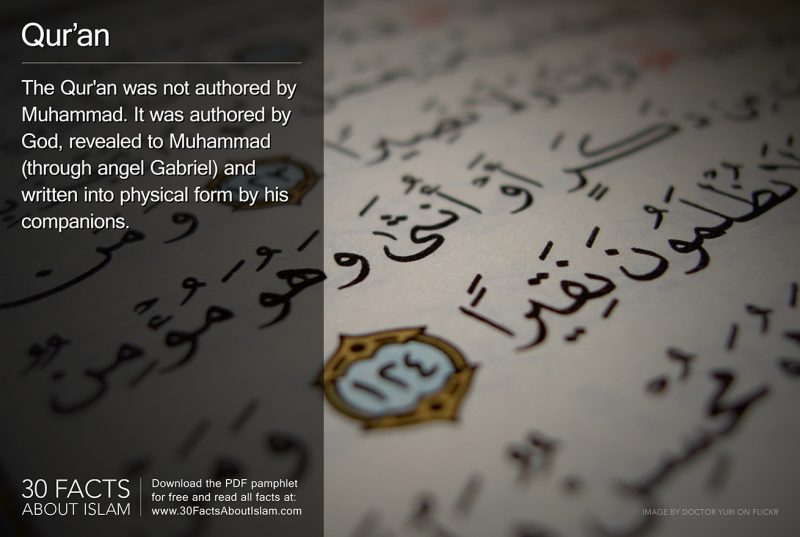 Qur'an
The Qur'an was not authored by
Muhammad. It was authored by
God, revealed to Muhammad
(through angel Gabriel) and
written into physical form by his
companions.
وَلَا نَصِيرًا ١٢٣ وَمَن
ذَكَرٍ أَوْ أُنثَىٰ وَهُوَ مُؤْمِنٌ
يُظْلَمُونَ نَقِيرًا ١٢٤
مُحْسِنٌ
30 FACTS
ABOUT ISLAM
Download the PDF pamphlet
for free and read all facts at:
www.30FactsAboutIslam.com
IMAGE BY DOCTOR YURI ON FLICKR